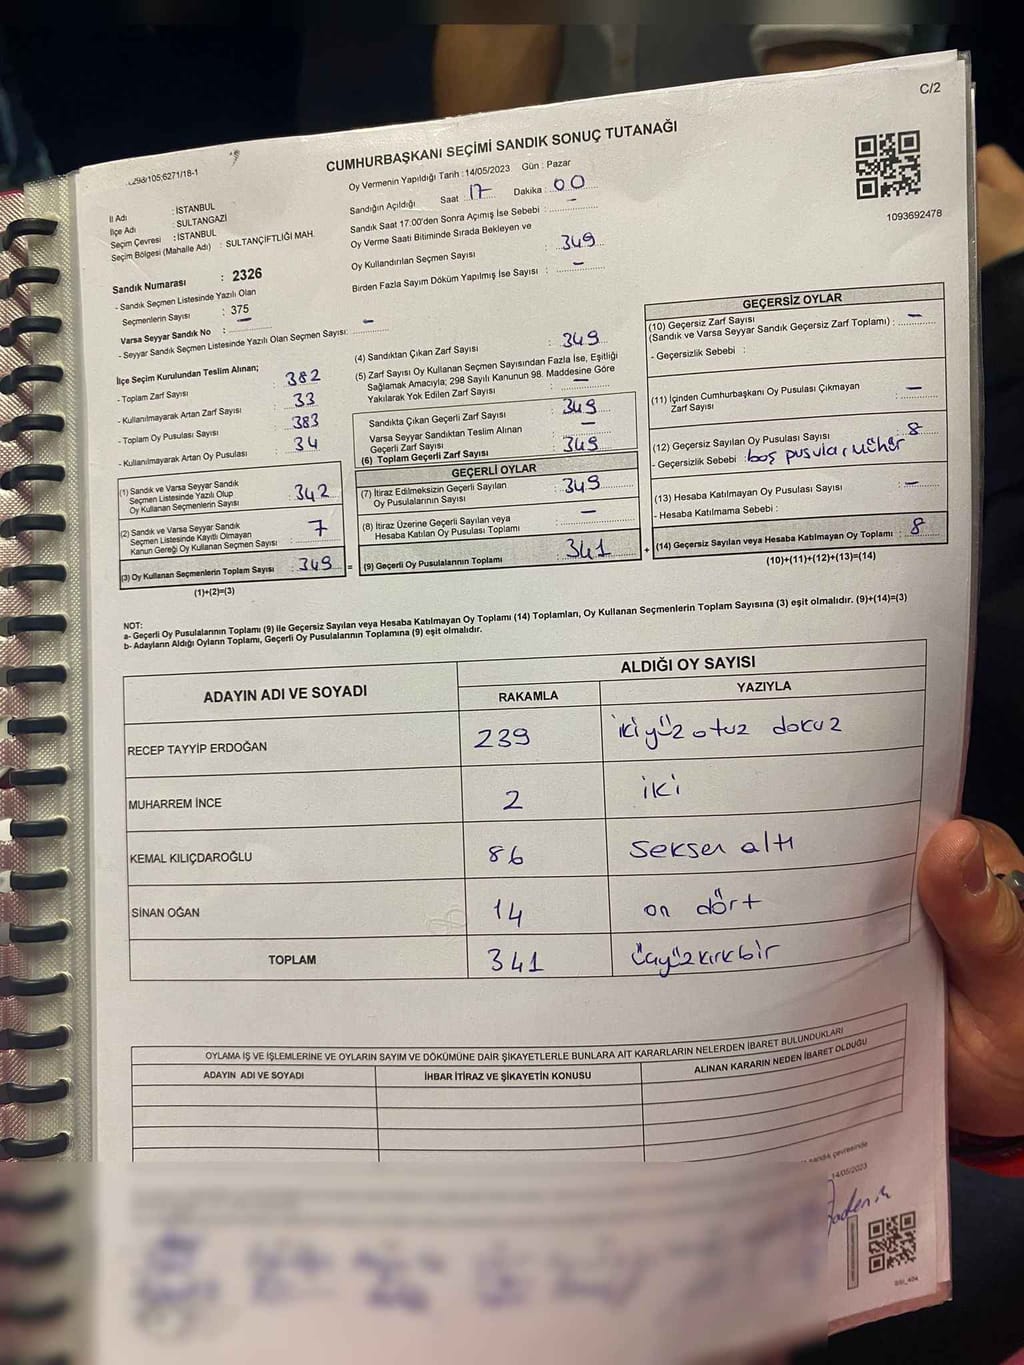 C/2
CUMHURBAŞKANI SEÇİMİ SANDIK SONUÇ TUTANAĞI
Oy Vermenin Yapıldığı Tarih : 14/05/2023 Gün : Pazar
Sandığın Açıldığı Saat 17 Dakika : 00
Sandık Saat 17:00'den Sonra Açılmış İse Sebebi : –
Oy Verme Saati Bitiminde Sırada Bekleyen ve
Oy Kullandırılan Seçmen Sayısı : 349
Birden Fazla Sayım Döküm Yapılmış İse Sayısı : –
1093692478
İl Adı : İSTANBUL
İlçe Adı : SULTANGAZİ
Seçim Çevresi : İSTANBUL
Seçim Bölgesi (Mahalle Adı) : SULTANÇİFTLİĞİ MAH.
Sandık Numarası : 2326
- Sandık Seçmen Listesinde Yazılı Olan
Seçmenlerin Sayısı : 375
Varsa Seyyar Sandık No : –
- Seyyar Sandık Seçmen Listesinde Yazılı Olan Seçmen Sayısı: –
İlçe Seçim Kurulundan Teslim Alınan;
- Toplam Zarf Sayısı : 382
- Kullanılmayarak Artan Zarf Sayısı : 33
- Toplam Oy Pusulası Sayısı : 383
- Kullanılmayarak Artan Oy Pusulası : 34
(1) Sandık ve Varsa Seyyar Sandık
Seçmen Listesinde Yazılı Olup
Oy Kullanan Seçmenlerin Sayısı : 342
(2) Sandık ve Varsa Seyyar Sandık
Seçmen Listesinde Kayıtlı Olmayan
Kanun Gereği Oy Kullanan Seçmen Sayısı : 7
(3) Oy Kullanan Seçmenlerin Toplam Sayısı : 349 =
(1)+(2)=(3)
(4) Sandıktan Çıkan Zarf Sayısı : 349
(5) Zarf Sayısı Oy Kullanan Seçmen Sayısından Fazla İse, Eşitliği
Sağlamak Amacıyla; 298 Sayılı Kanunun 98. Maddesine Göre
Yakılarak Yok Edilen Zarf Sayısı : –
Sandıkta Çıkan Geçerli Zarf Sayısı : 349
Varsa Seyyar Sandıktan Teslim Alınan
Geçerli Zarf Sayısı : –
(6) Toplam Geçerli Zarf Sayısı : 349
GEÇERLİ OYLAR
(7) İtiraz Edilmeksizin Geçerli Sayılan
Oy Pusulalarının Sayısı : 349
(8) İtiraz Üzerine Geçerli Sayılan veya
Hesaba Katılan Oy Pusulası Toplamı : –
(9) Geçerli Oy Pusulalarının Toplamı : 341 +
GEÇERSİZ OYLAR
(10) Geçersiz Zarf Sayısı
(Sandık ve Varsa Seyyar Sandık Geçersiz Zarf Toplamı) : –
- Geçersizlik Sebebi :
(11) İçinden Cumhurbaşkanı Oy Pusulası Çıkmayan
Zarf Sayısı : –
(12) Geçersiz Sayılan Oy Pusulası Sayısı : 8
- Geçersizlik Sebebi : boş pusula, mühür
(13) Hesaba Katılmayan Oy Pusulası Sayısı : –
- Hesaba Katılmama Sebebi :
(14) Geçersiz Sayılan veya Hesaba Katılmayan Oy Toplamı : 8
(10)+(11)+(12)+(13)=(14)
NOT:
a- Geçerli Oy Pusulalarının Toplamı (9) ile Geçersiz Sayılan veya Hesaba Katılmayan Oy Toplamı (14) Toplamları, Oy Kullanan Seçmenlerin Toplam Sayısına (3) eşit olmalıdır. (9)+(14)=(3)
b- Adayların Aldığı Oyların Toplamı, Geçerli Oy Pusulalarının Toplamına (9) eşit olmalıdır.
ADAYIN ADI VE SOYADI ALDIĞI OY SAYISI
RAKAMLA YAZIYLA
RECEP TAYYİP ERDOĞAN 239 ikiyüz otuz dokuz
MUHARREM İNCE 2 iki
KEMAL KILIÇDAROĞLU 86 seksen altı
SİNAN OĞAN 14 on dört
TOPLAM 341 üçyüzkırkbir
OYLAMA İŞ VE İŞLEMLERİNE VE OYLARIN SAYIM VE DÖKÜMÜNE DAİR ŞİKAYETLERLE BUNLARA AİT KARARLARIN NELERDEN İBARET BULUNDUKLARI
ADAYIN ADI VE SOYADI İHBAR İTİRAZ VE ŞİKAYETİN KONUSU ALINAN KARARIN NEDEN İBARET OLDUĞU
sandık çevresinde
14/05/2023